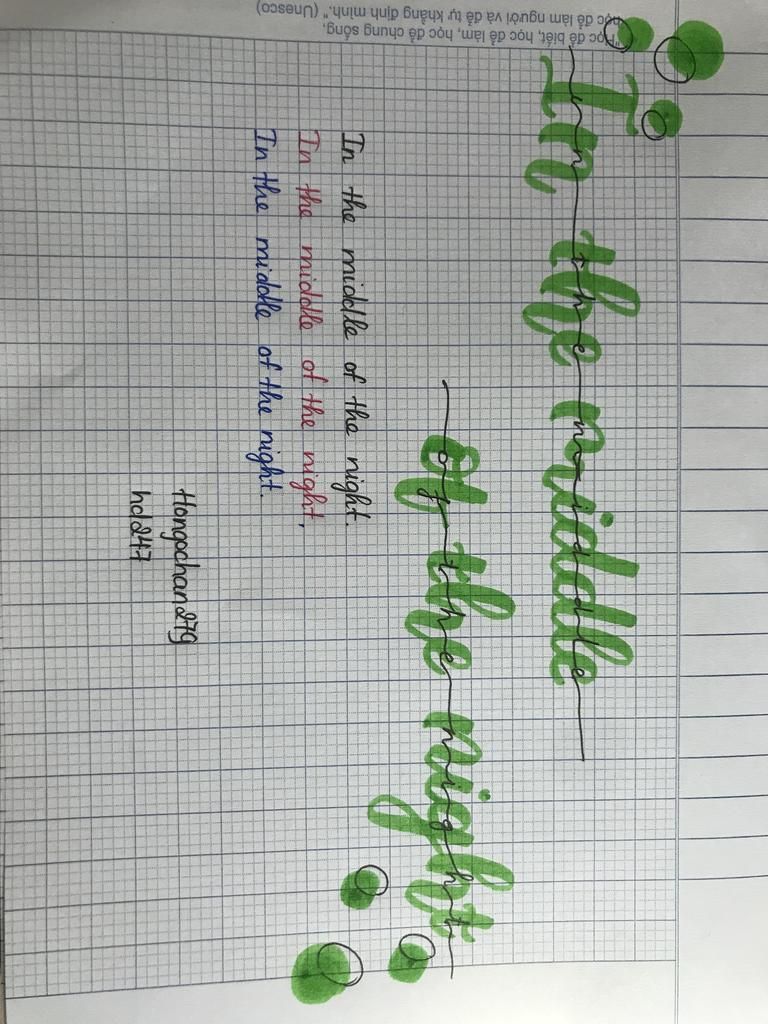 "Học để biết, học để làm, học để chung sống,
học để làm người và để tự khẳng định mình." (Unesco)
In the middle
In the middle
of the night
of the night
In the middle of the night.
In the middle of the night,
In the middle of the night.
Hongpchan279
hcl247